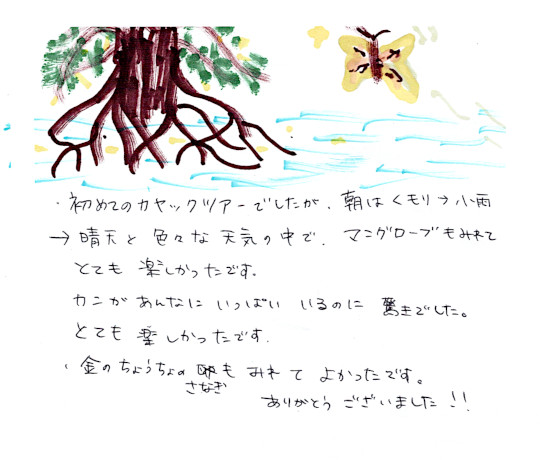 ・初めてのカヤックツアーでしたが、朝はくもり→小雨
→晴天と色々な天気の中で、マングローブもみれて
とても楽しかったです。
カニがあんなにいっぱいいるのに驚きでした。
とても楽しかったです.
・金のちょうちょのも みれて よかったです。
さなぎ
ありがとう ございました!!